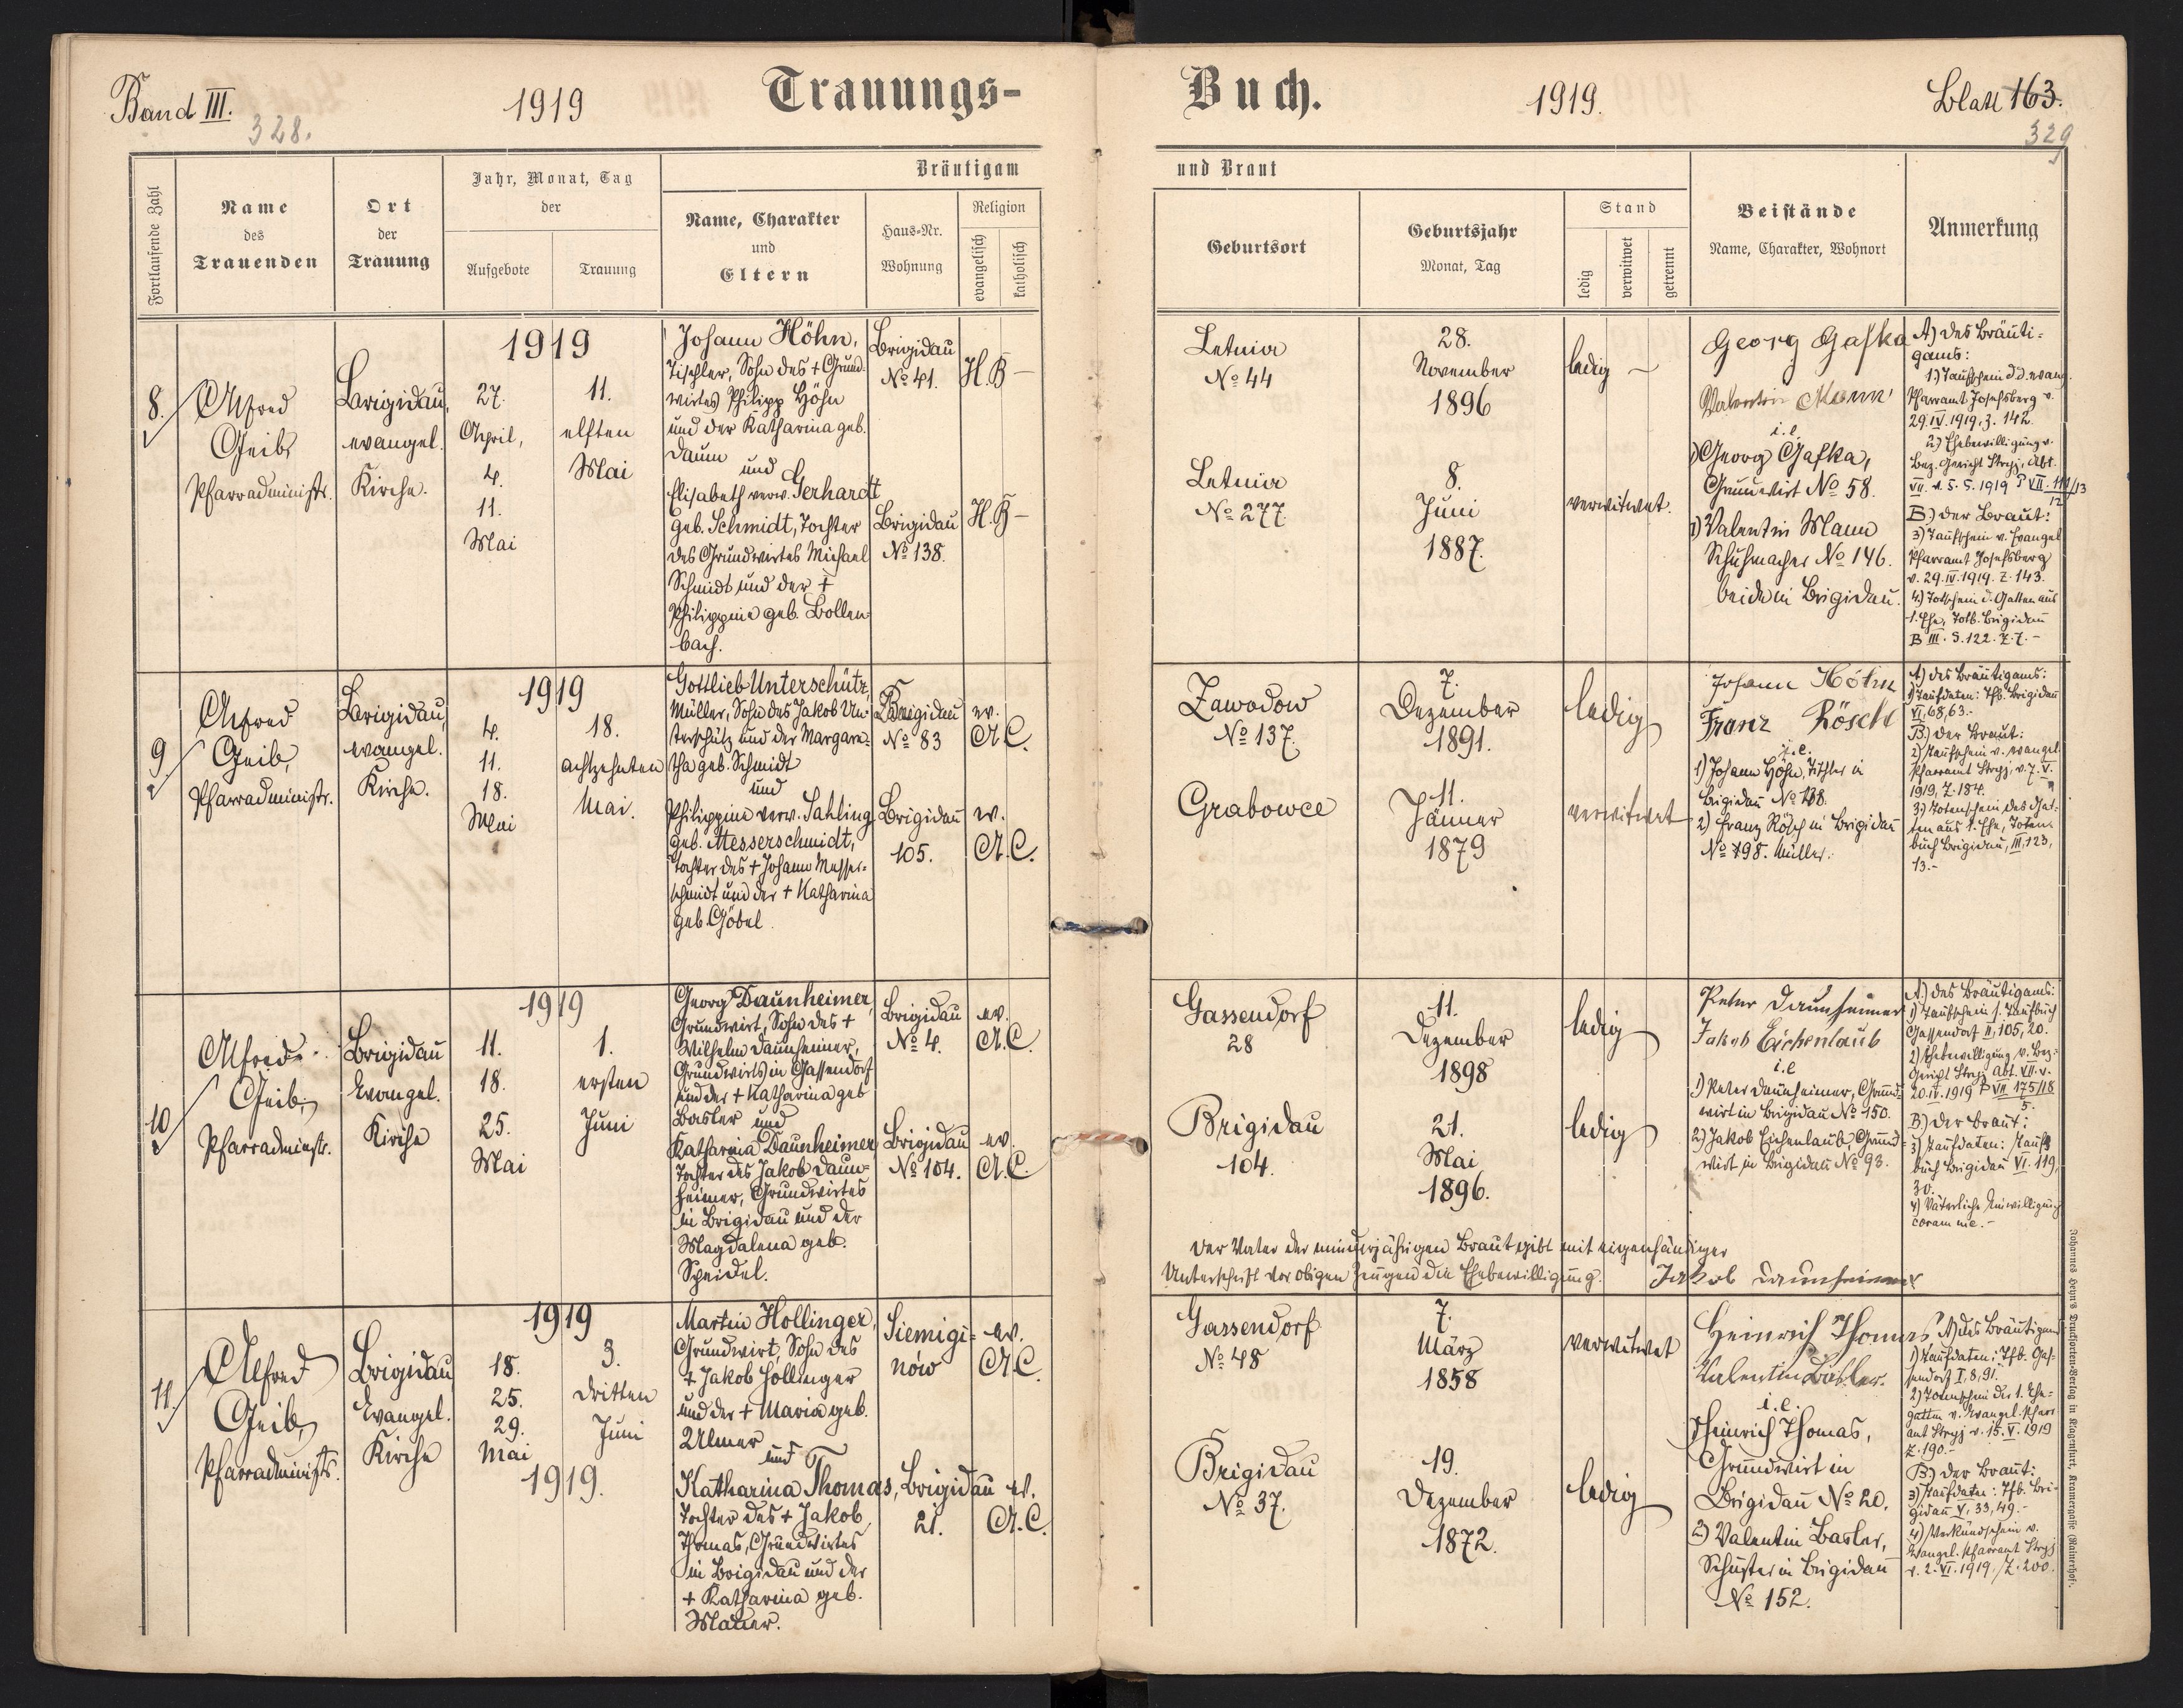 Band III.
328.
1919
Trauungs-
Fortlaufende Zahl
Name
des
Trauenden
Ort
der
Trauung
Jahr, Monat, Tag
der
Aufgebote
Trauung
Bräutigam
Name, Charakter
und
Eltern
Haus-Nr.
Wohnung
Religion
evangelisch
katholisch
8.
Alfred
Geib,
Pfarradministr.
Brigidau,
evangel.
Kirche.
1919
27.
April,
4.
11.
Mai
11.
elften
Mai
Johann Höhn,
Tischler, Sohn des + Grund-
wirtes Philipp Höhn
und der Katharina geb.
Daum
und
Elisabeth verw. Gerhardt
geb. Schmidt, Tochter
des Grundwirtes Michael
Schmidt und der +
Philippine geb. Bollen-
bach.
Brigidau
No 41.
H.B –
Brigidau
No 138.
H.B –
9.
Alfred
Geib,
Pfarradministr.
Brigidau,
evangel.
Kirche.
1919
4.
11.
18.
Mai
18.
achtzehnten
Mai.
Gottlieb Unterschütz,
Müller, Sohn des Jakob Un-
terschütz und der Margare-
tha geb. Schmidt
und
Philippine verw. Sahling
geb. Messerschmidt,
Tochter des + Johann Messer-
schmidt und der + Katharina
geb. Göbel.
Brigidau
No 83
ev.
A.C.
Brigidau
105.
ev.
A.C.
10
Alfred
Geib,
Pfarradministr.
Brigidau
Evangel.
Kirche
1919
11.
18.
25.
Mai
1.
ersten
Juni
Georg Daunheimer,
Grundwirt, Sohn des +
Wilhelm Daunheimer,
Grundwirts in Gassendorf
und der + Katharina geb
Basler und
Katharina Daunheimer
Tochter des Jakob Daun-
heimer, Grundwirtes
in Brigidau und der
Magdalena geb.
Speidel.
Brigidau
No 4.
ev.
A.C.
Brigidau
No 104.
ev.
A.C.
11.
Alfred
Geib,
Pfarradministr.
Brigidau
Evangel.
Kirche
1919
18.
25.
29.
Mai
1919.
3.
dritten
Juni
Martin Hollinger,
Grundwirt, Sohn des
+ Jakob Hollinger
und der + Maria geb.
Ulmer
und
Katharina Thomas,
Tochter des + Jakob
Thomas, Grundwirtes
in Brigidau und der
+ Katharina geb.
Mauer.
Siemigi-
nów
ev.
A.C.
Brigidau
21.
ev.
A.C.
Buch.
1919.
Blatt 163.
329
und Braut
Geburtsort
Geburtsjahr
Monat, Tag
Stand
ledig
verwitwet
getrennt
Beistände
Name, Charakter, Wohnort
Anmerkung
Letnia
No 44
28.
November
1896
ledig –
Letnia
No 277
8.
Juni
1887.
verwitwet.
Georg Gafka
Valentin Mann
i.e.
1) Georg Gafka,
Grundwirt No 58.
2) Valentin Mann
Schuhmacher No 146.
beide in Brigidau.
A) des Bräuti-
gams:
1.) Taufschein d.d. evang.
Pfarramt Josefsberg v.
29.IV.1919, z. 142.
2.) Ehebewilligung v.
Bez. Gericht Stryj, Abt.
VII. v. 5.5.1919 P VII.
B.) der Braut:
3) Taufschein v. Evangel
Pfarramt Josefsberg
v. 29.IV.1919. Z. 143.
4.) Totschein d. Gatten aus
1. Ehe, Totb. Brigidau
B III. S. 122. Z. 7. –
Zawadow
No 137.
7.
Dezember
1891.
ledig
Grabowce
11.
Jänner
1879
verwitwet
Johann Höhn
Franz Rösch
i.e.
1) Johann Höhn, Tischler in
Brigidau No 138.
2) Franz Rösch in Brigidau
No 198. Müller.
A) des Bräutigams:
1) Taufdaten: Tfb. Brigidau
VI, 68, 63. –
B.) der Braut:
2) Taufschein v. evangel.
Pfarramt Stryj, v. 7. V.
1919, Z. 184.
3.) Totenschein des Gat-
ten aus 1. Ehe, Toten-
buch Brigidau, III, 123,
13. –
Gassendorf
28
11.
Dezember
1898
ledig
Brigidau
104.
21.
Mai
1896.
ledig
Peter Daunheimer
Jakob Eichenlaub
i.e
1) Peter Daunheimer, Grund-
wirt in Brigidau No 150.
2) Jakob Eichenlaub, Grund
wirt in Brigidau No 93.
A.) des Bräutigams:
1) Taufschein s. Taufbuch
Gassendorf II, 105, 20.
2) Ehebewilligung v. Bez.-
Gericht Stryj Abt. VII. v.
20.IV.1919 P VII 175/18
5.
B.) der Braut:
3) Taufdaten: Tauf-
buch Brigidau VI. 119,
30.
4) Väterliche Einwilligung
coram me. –
Der Vater der minderjährigen Braut gibt mit eigenhändiger
Unterschrift vor obigen Zeugen die Ehebewilligung. Jakob Daunheimer
Gassendorf
No 48
7.
März
1858
verwitwet
Brigidau
No 37.
19.
Dezember
1872.
ledig
Heinrich Thomas
Valentin Basler.
i.e.
1) Heinrich Thomas,
Grundwirt in
Brigidau No 20.
2) Valentin Basler,
Schuster in Brigidau
No 152.
A) des Bräutigams
1) Taufdaten: Tfb. Gas-
sendorf I, 8, 91.
2) Totenschein der 1. Ehe-
gattin v. Evangel. Pfarr
amt Stryj v. 15. V. 1919
Z. 190. –
B.) der Braut:
3) Taufdaten: Tfb. Bri-
gidau V, 33, 49. –
4) Verkündschein v.
Evangel. Pfarramt Stryj
v. 2. VI. 1919. / Z. 200.
Johannes Heyn's Drucksorten-Verlag in Klagenfurt, Kramergasse (Rainerhof).